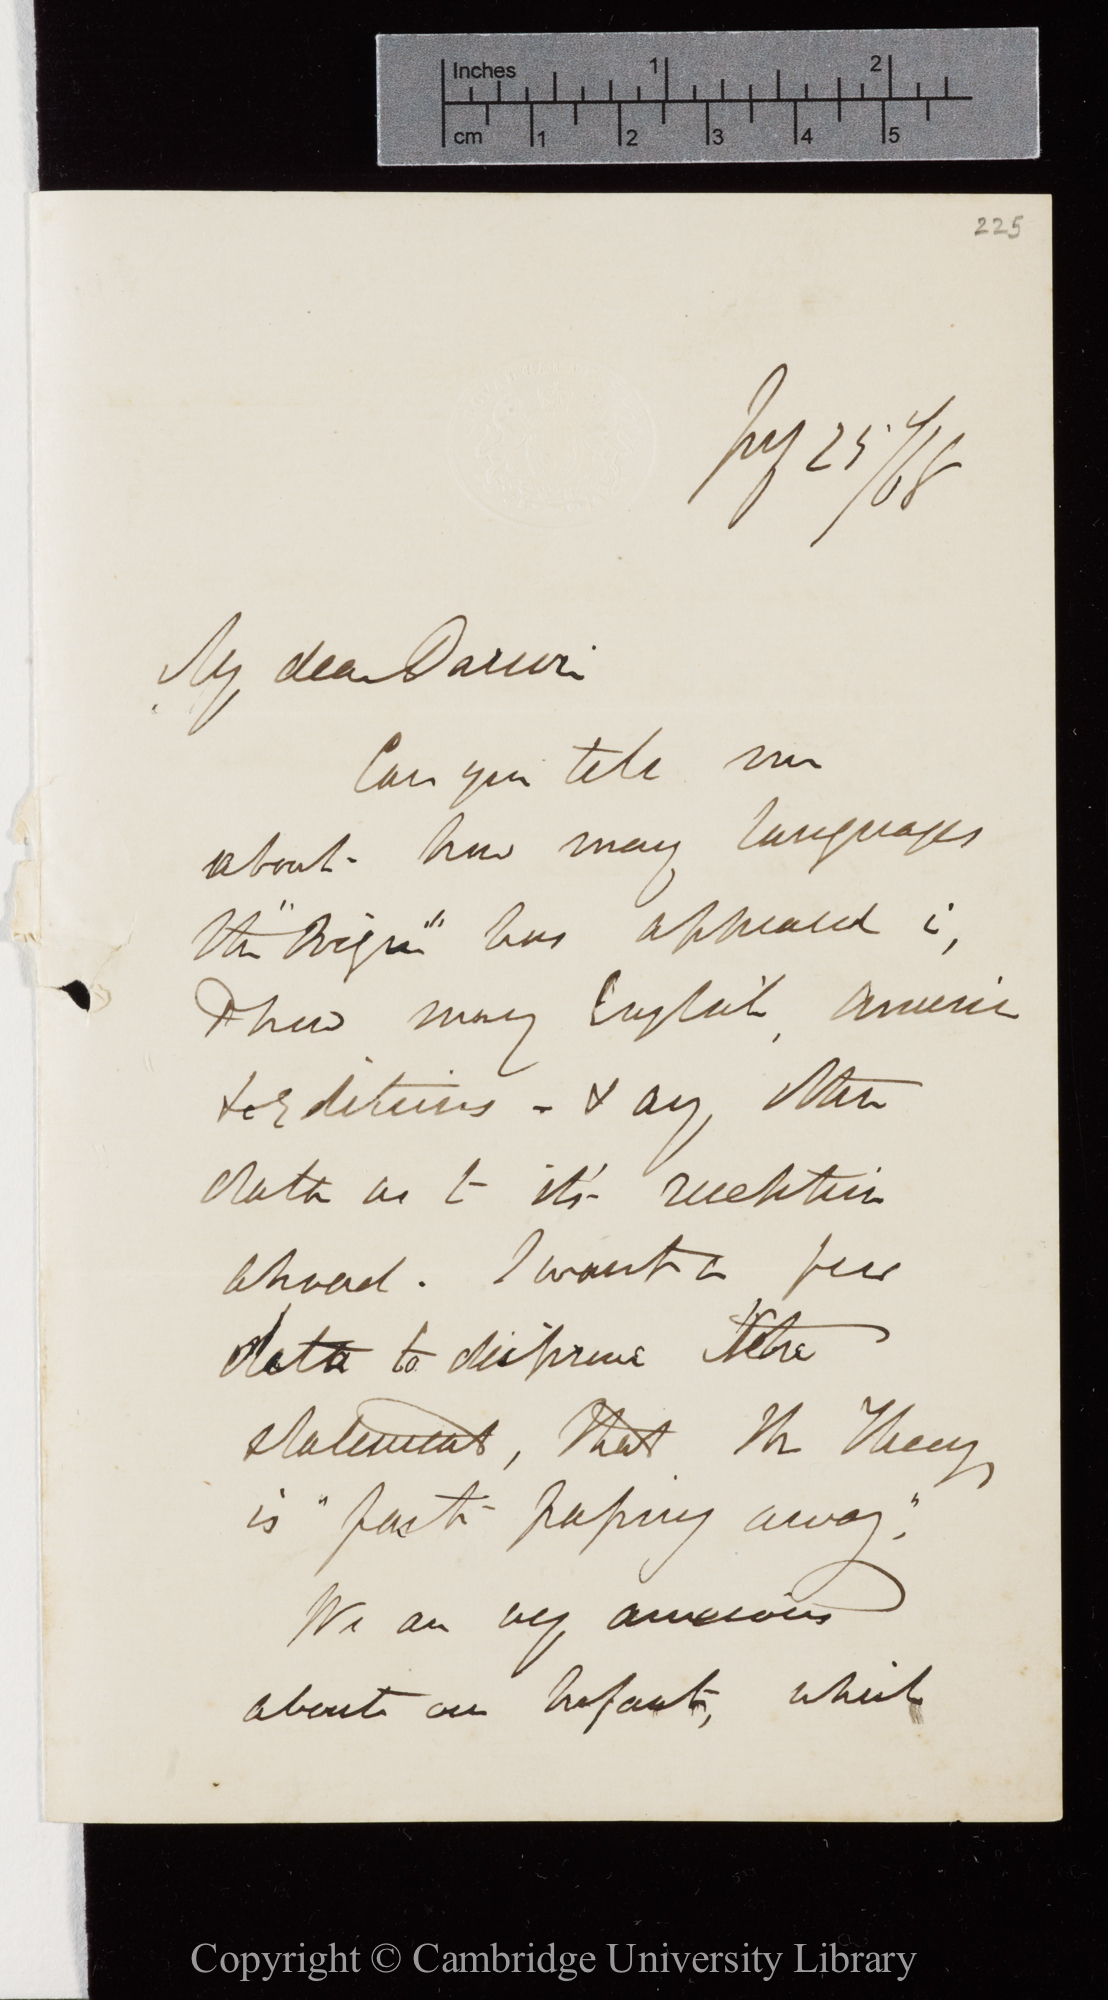 Inches 1 2
cm 1 2 3 4 5
225
July 25/68
My dear Darwin
Can you tell me
about how many languages
the "Origin" has appeared i,
& how many English, America
& editions — & any other
data as to it's reception
abroad. I want a few
data to disprove the
statement, that the Theory
is "fast passing away".
We are very anxious
about our Infant, which
Copyright © Cambridge University Library